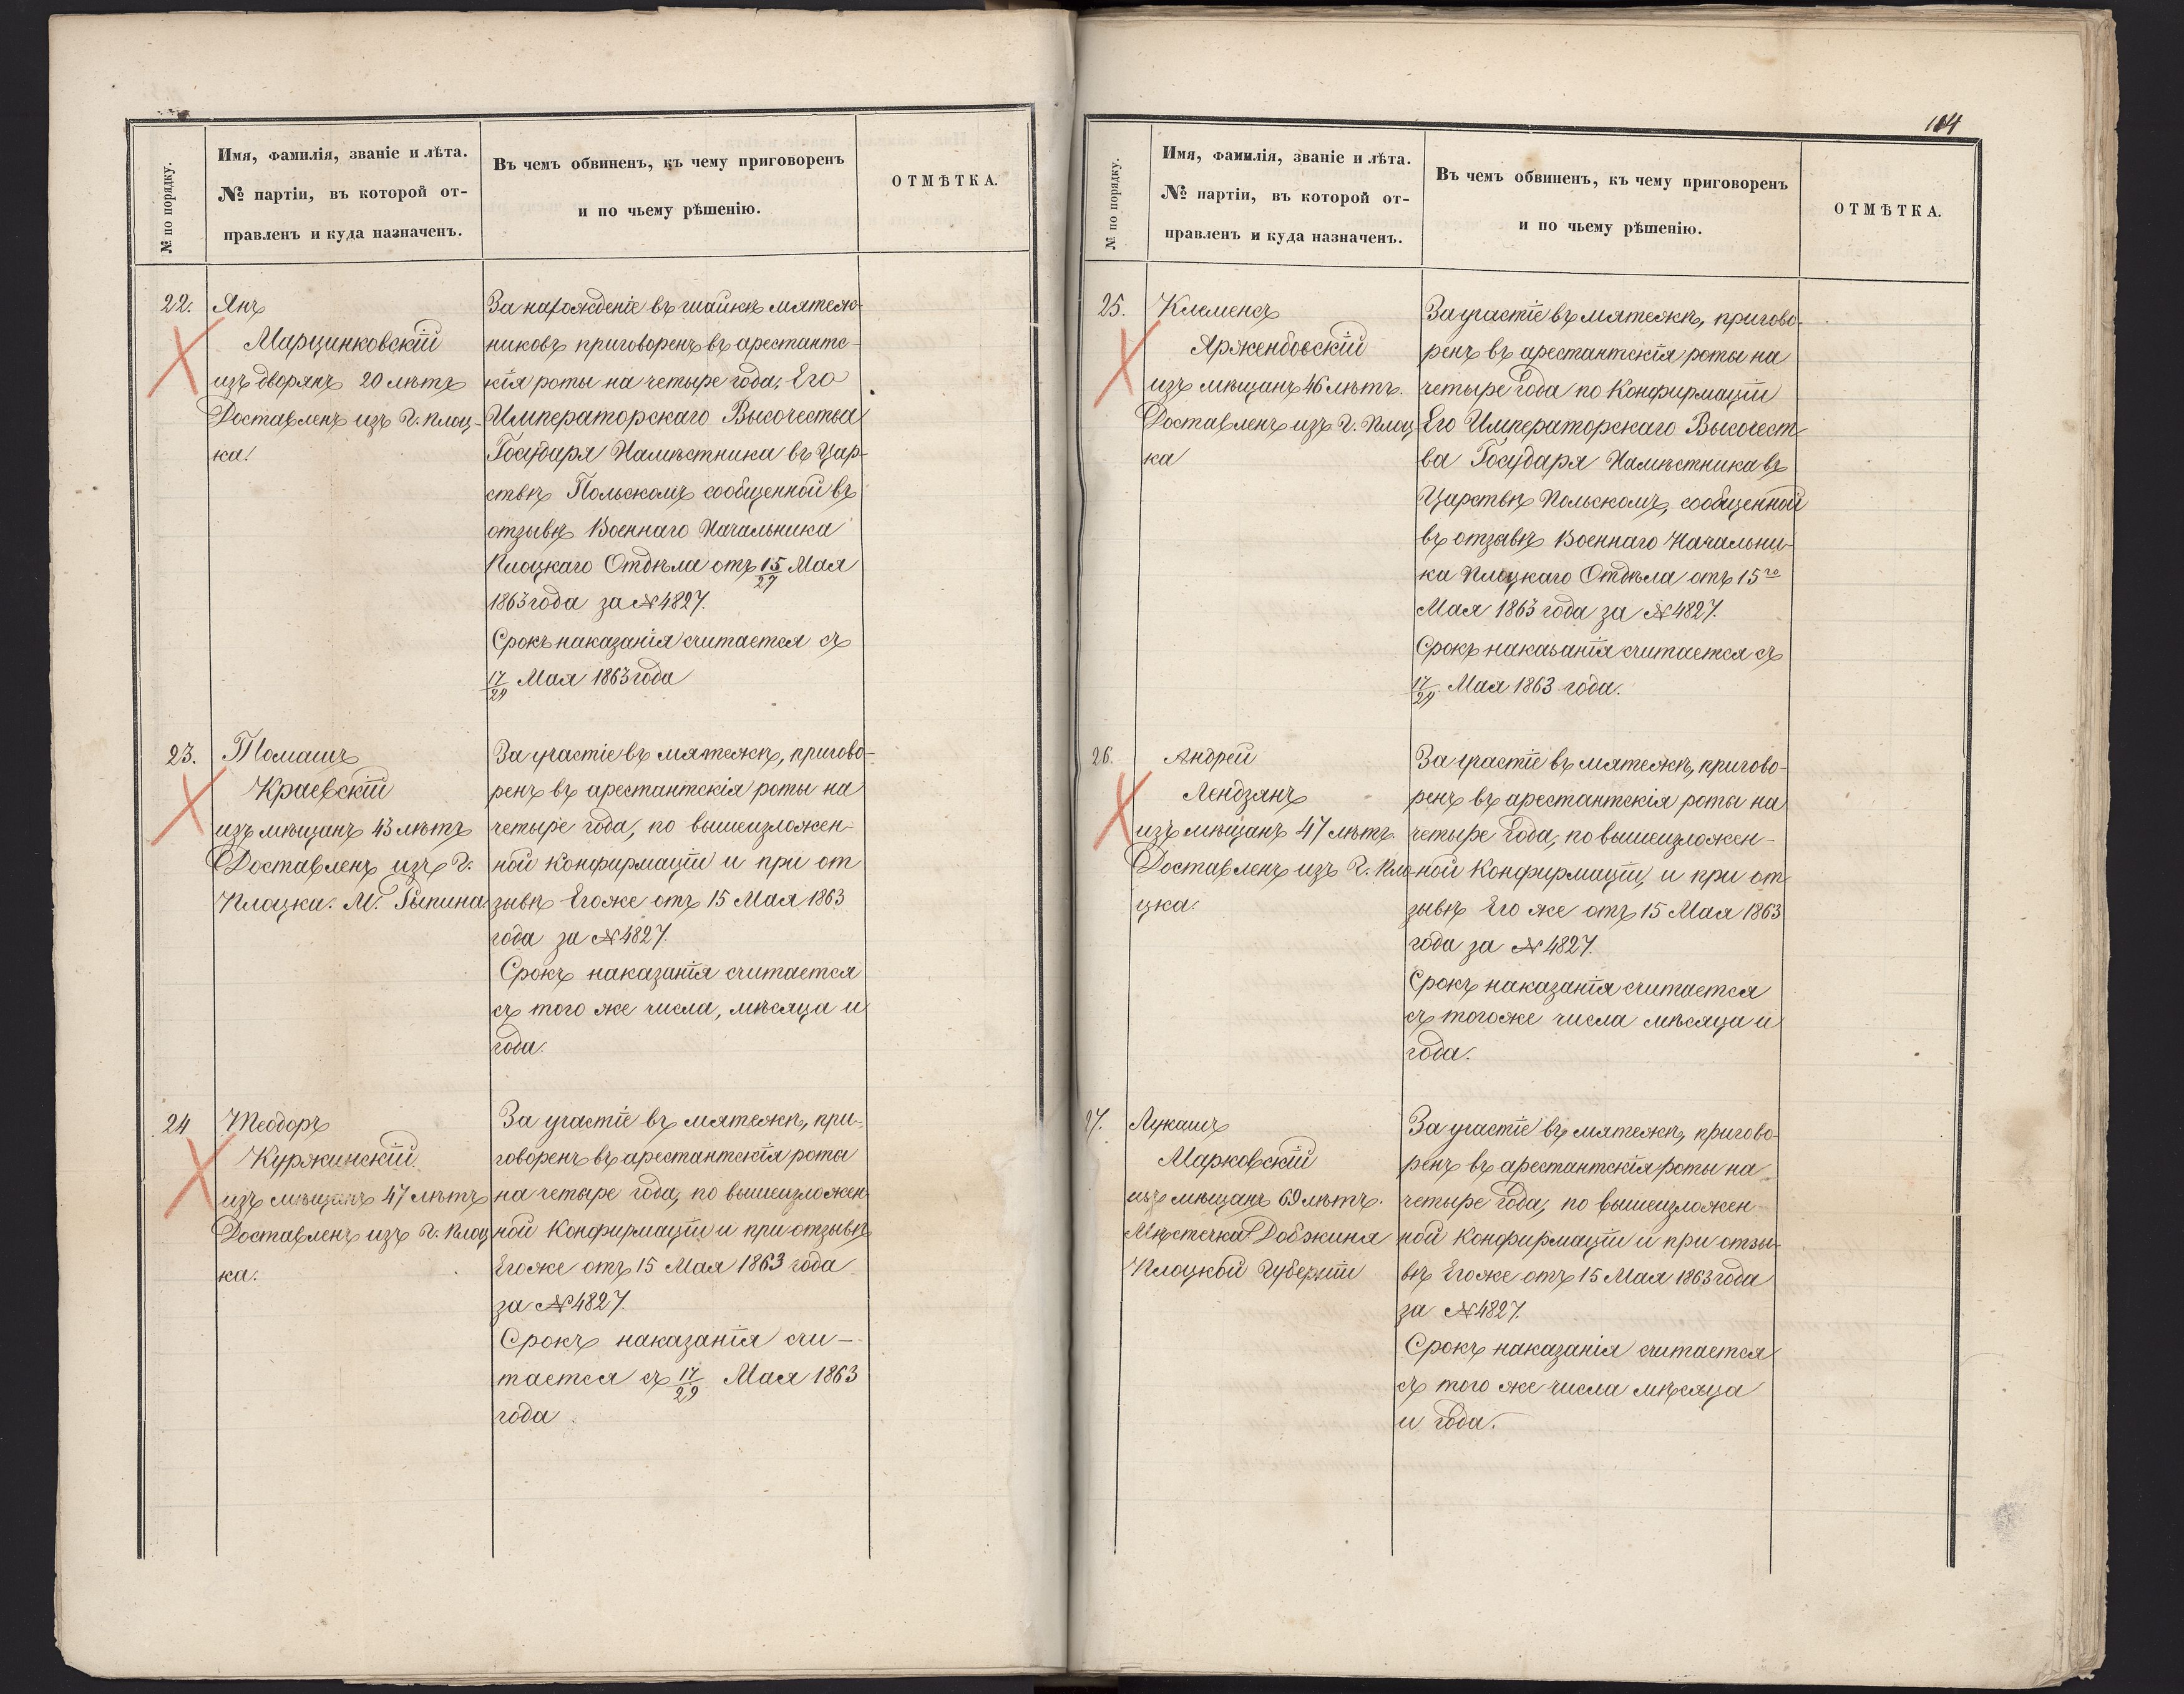 № по порядку.
Имя, фамилія, званіе и лѣта.
№ партіи, въ которой от-
правленъ и куда назначенъ.
Въ чемъ обвиненъ, къ чему приговоренъ
и по чьему рѣшенію.
ОТМѢТКА.
22.
Янъ
Марцинковскій
изъ дворянъ 20 лѣтъ
Доставленъ изъ г. Плоц-
ка.
За нахожденіе въ шайкѣ мятеж-
никовъ приговоренъ въ арестантс-
кія роты на четыре года, Его
Императорскаго Высочества
Государя Намѣстника въ Цар-
ствѣ Польскомъ сообщенной въ
отзывѣ Военнаго Начальника
Плоцкаго Отдѣла отъ 15/27 Мая
1863 года за № 4827.
Срокъ наказанія считается съ
17/29 Мая 1863 года
23.
Томашъ
Краевскій
изъ мѣщанъ 43 лѣтъ
Доставленъ изъ г.
Плоцка. М. Рыпина
За участіе въ мятежѣ, пригово-
ренъ въ арестантскія роты на
четыре года, по вышеизложен-
ной конфирмаціи и при от
зывѣ Егоже отъ 15 Мая 1863
года за № 4827.
Срокъ наказанія считается
съ того же числа, мѣсяца и
года.
24
Теодоръ
Куржинскій
изъ мѣщанъ 47 лѣтъ
Доставленъ изъ г. Плоц
ка.
За участіе въ мятежѣ, при-
говоренъ въ арестантскія роты
на четыре года, по вышеизложен
ной Конфирмаціи и при отзывѣ
Егоже отъ 15 Мая 1863 года
за № 4827.
Срокъ наказанія счи-
тается съ 17/29 Мая 1863
года
104
№ по порядку.
Имя, фамилія, званіе и лѣта.
№ партіи, въ которой от-
правленъ и куда назначенъ.
Въ чемъ обвиненъ, къ чему приговоренъ
и по чьему рѣшенію.
ОТМѢТКА.
25.
Клеменсъ
Ярженбовскій
изъ мѣщанъ 46 лѣтъ.
Доставленъ изъ г. Плоц
ка
За участіе въ мятежѣ, пригово-
ренъ въ арестантскія роты на
четыре года по Конфирмаціи
Его Императорскаго Высочест
ва Государя Намѣстника въ
Царствѣ Польскомъ, сообщенной
въ отзывѣ Военнаго Начальни-
ка Плоцкаго Отдѣла отъ 15го
Мая 1863 года за № 4827.
Срокъ наказанія считается съ
17/29 Мая 1863 года.
26.
Андрей
Лендзянъ
изъ мѣщанъ 47 лѣтъ.
Доставленъ изъ г. Пло-
цка.
За участіе въ мятежѣ, пригово-
ренъ въ арестантскія роты на
четыре года, по вышеизложен-
ной Конфирмаціи, и при от
зывѣ Его же отъ 15 Мая 1863
года за № 4827.
Срокъ наказанія считается
съ тогоже числа мѣсяца и
года.
27.
Лукашъ
Марковскій
изъ мѣщанъ 69 лѣтъ.
Мѣстечка Добжиня
Плоцкой Губерніи
За участіе въ мятежѣ, пригово-
ренъ въ арестантскія роты на
четыре года, по вышеизложен
ной Конфирмаціи и при отзы-
вѣ Егоже отъ 15 Мая 1863 года
за № 4827.
Срокъ наказанія считается
съ того же числа мѣсяца
и года.